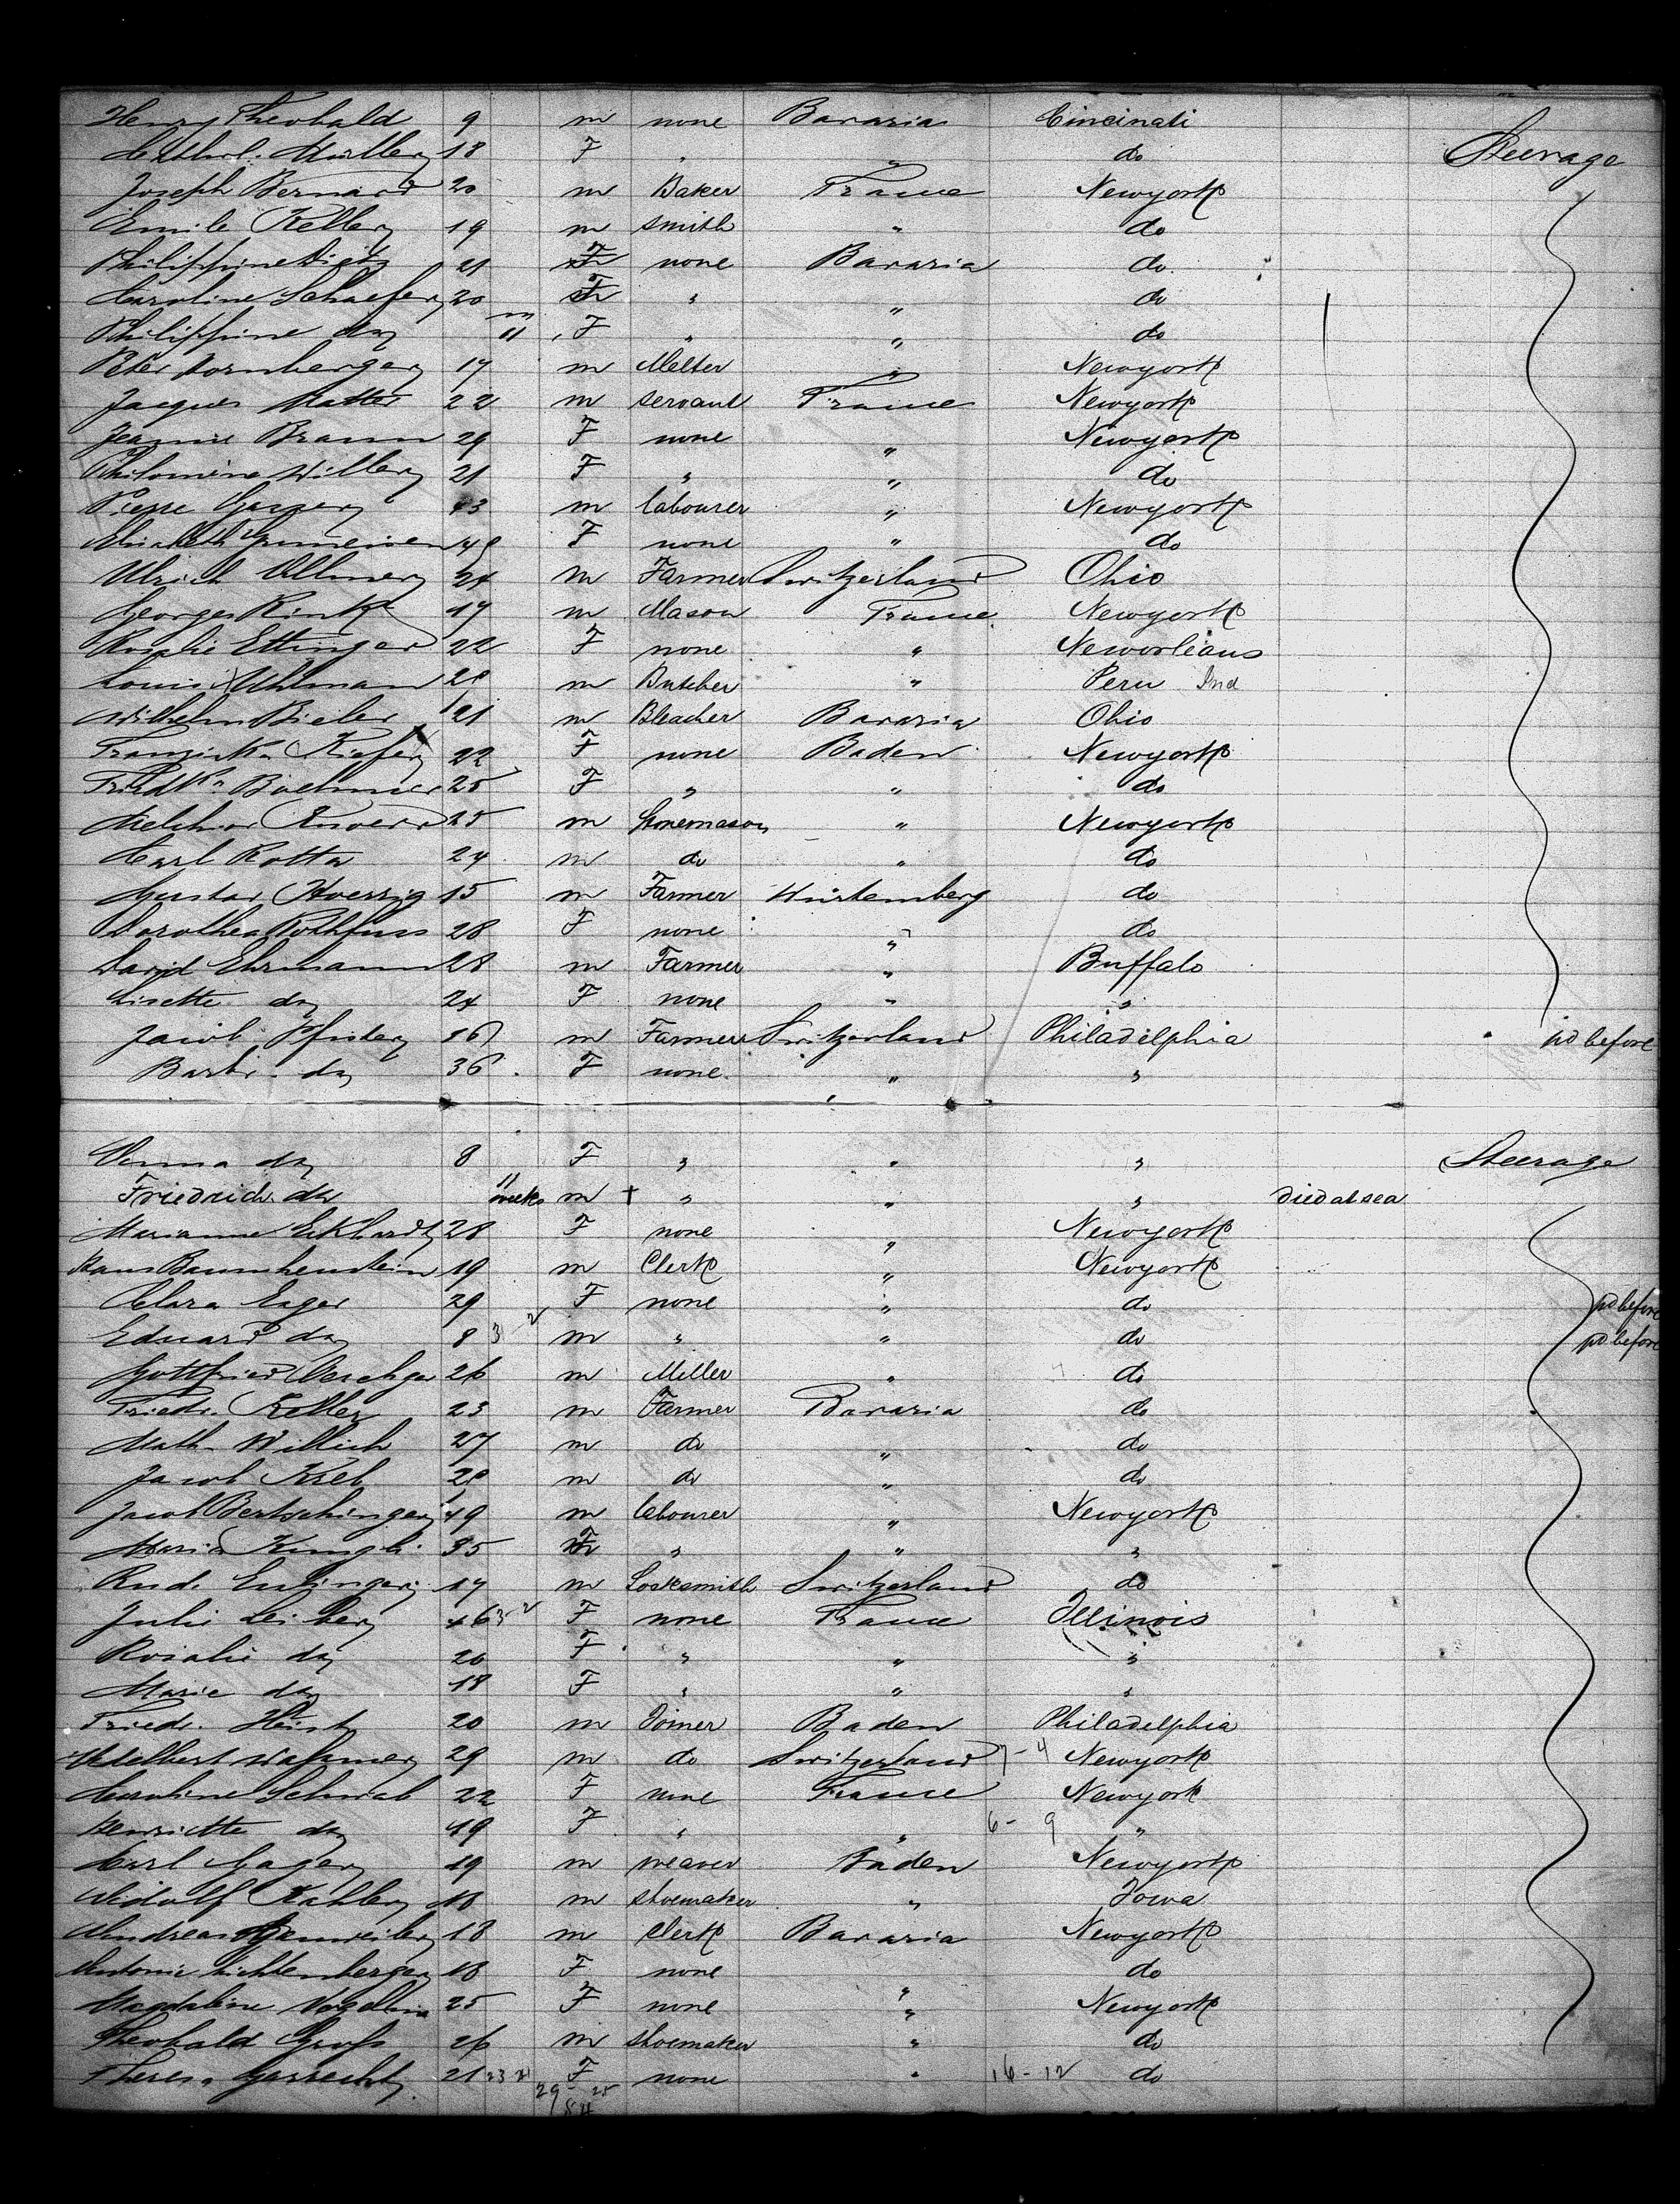 Henry Theobald 9 m none Bavaria Cincinati
Cathrl. Müller 18 F " " do Steerage
Joseph Bernard 20 m Baker France Newyork
Emile Keller 19 m smith " do
Philippine Dietz 21 F none Bavaria do
Caroline Schaefer 20 F " " do
Philippine do 11 m F " " do
Peter Dornberger 17 m Melter " Newyork
Jacques Matter 22 m servant France Newyork
Jeannie Braun 29 F none " Newyork
Philomène Willer 21 F " " do
Pierre 43 m labourer " Newyork
Elisabeth 49 F none " do
Ulrich Ullmer 24 m Farmer Switzerland Ohio
Georges Rink 17 m Mason France Newyork
Rosalie Ettinger 22 F none " Neworleans
Louis Uhlman 28 m Butcher " Peru Ind
Wilhelm Bieler 21 m Bleacher Bavaria Ohio
Franziska Kiefer 22 F none Baden Newyork
Friedka Boehmer 25 F " " do
Melchior 25 m Stonemason " Newyork
Carl Rotta 24 m do " do
Gustav 15 m Farmer Würtemberg do
Dorothea Rothfuss 28 F none " do
David Ehrmann 28 m Farmer " Buffalo
Lisette do 24 F none " "
Jacob Pfister 36 m Farmer Switzerland Philadelphia no before
Barb. do 36 F none " "
Verena do 8 F " " " Steerage
Friedrich do 11 weeks m + " " " died at sea
Marianne Eckhardt 28 F none " Newyork
Hans 19 m Clerk " Newyork
Clara Enger 29 F none " do no before
Eduard do 8 3 2 m " " do no before
Gottfried 26 m Miller " do
Friedr. Keller 23 m Farmer Bavaria do
Math. Willich 27 m do " do
Jacob Kreb 28 m do " do
Jacob Bertschinger 49 m labourer " Newyork
Maria Kungli 35 F " " "
Rud. 17 m Locksmith Switzerland do
Julie 46 3-2 F none France Illinois
Rosalie do 20 F " " "
Marie do 18 F " " "
Friedr. 20 m Joiner Baden Philadelphia
Adelbert 29 m do Switzerland 7-4 Newyork
Caroline Schwab 22 F none France Newyork
Henriette do 19 F " " 6-9 "
Carl 19 m weaver Baden Newyork
Adolf Kahler 18 m shoemaker " Iowa
Andreas 18 m clerk Bavaria Newyork
Antonie Lichtenberger 18 F none " do
Magdaline 25 F none " Newyork
Theobald Gross 26 m shoemaker " do
Theresa Garrecht 21 23 21 F none " 16-12 do
29-25
54